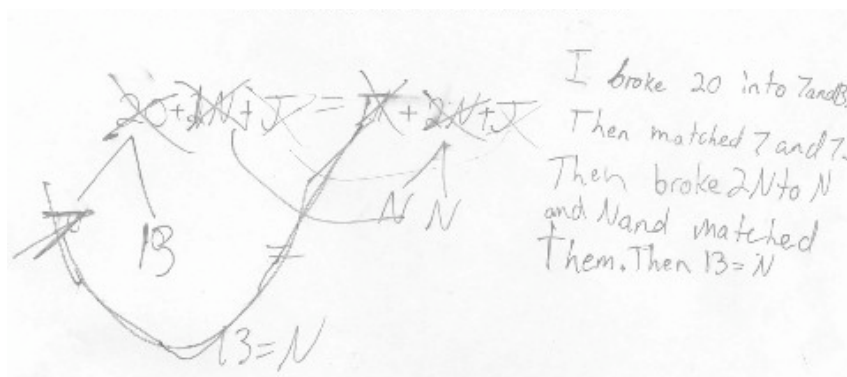 20+1N+J = 7+2N+J
7 13 = N N
13=N
I broke 20 into 7and13.
Then matched 7 and 7.
Then broke 2N to N
and N and matched
them. Then 13=N